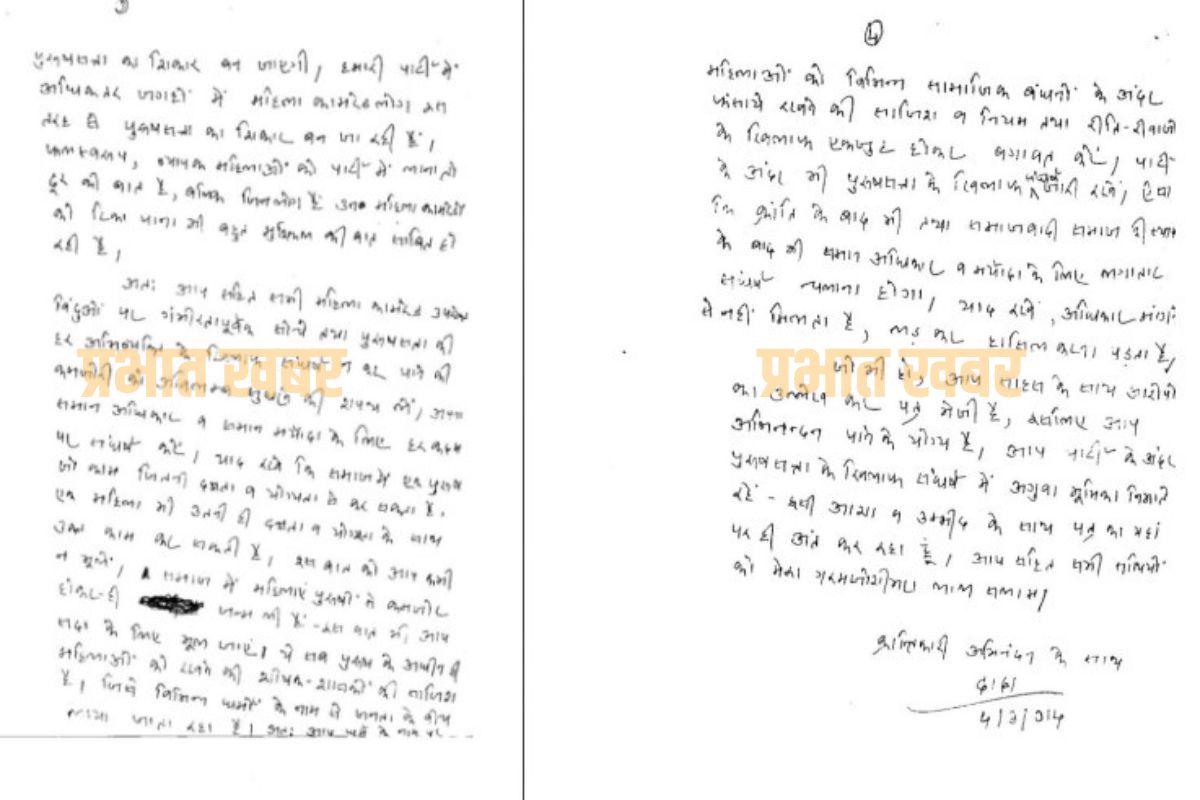 3
पुरूषसत्ता का शिकार बन जाएगी, हमारी पार्टी में
अधिकतर जगहों में महिला कामरेड लोग इस
तरह से पुरूषसत्ता का शिकार बन जा रही हैं।
फलस्वरूप, व्यापक महिलाओं को पार्टी में लाना तो
दूर की बात है, बल्कि जितने लोग हैं उन महिला कामरेडों
को टिका पाना भी बहुत मुश्किल की बात साबित हो
रही है,
अतः आप सहित सभी महिला कामरेड उपरोक्त
बिंदुओं पर गंभीरतापूर्वक सोचें तथा पुरूषसत्ता की
हर अभिव्यक्ति के खिलाफ संघर्ष न कर पाने की
कमजोरी को अविलम्ब सुधारने की शपथ लें,
समान अधिकार व समान मर्यादा के लिए हर कदम
पर संघर्ष करें, याद रखें कि समाज में एक पुरूष
जो काम जितनी दक्षता व योग्यता से कर सकता है,
एक महिला भी उतनी ही दक्षता व योग्यता के साथ
उक्त काम कर सकती है, इस बात को आप कभी
न भूलें, समाज में महिलाएं पुरूषों से कमजोर
होकर ही जन्म ली हैं - इस बात को आप
सदा के लिए भूल जाएं। ये सब पुरूष के अधीन ही
महिलाओं को रखने की शोषक-शासकों की साजिश
है, जिसे विभिन्न धर्मों के नाम से जनता के बीच
लाया जाता रहा है। अतः आप धर्म के नाम पर
4
महिलाओं को विभिन्न सामाजिक बंधनों के अंदर
फंसाये रखने की साजिश व नियम तथा रीति-रीवाजों
के खिलाफ एकजुट होकर बगावत करें, पार्टी
के अंदर भी पुरूषसत्ता के खिलाफ संघर्ष जारी रखें,
कि क्रांति के बाद भी तथा समाजवादी समाज की स्थापना
के बाद भी समान अधिकार व मर्यादा के लिए लगातार
संघर्ष चलाना होगा, याद रखें, अधिकार मांगने
से नहीं मिलता है, लड़ कर हासिल करना पड़ता है,
जो भी हो, आप साहस के साथ आरोपों
का उल्लेख कर पत्र भेजी हैं, इसलिए आप
अभिनन्दन पाने के योग्य हैं, आप पार्टी के अंदर
पुरूषसत्ता के खिलाफ संघर्ष में अगुवा भूमिका निभाते
रहें - इसी आशा व उम्मीद के साथ पत्र का यहां
पर ही अंत कर रहा हूँ, आप सहित सभी साथियों
को मेरा गरमजोशीभरा लाल सलाम।
क्रान्तिकारी अभिनंदन के साथ
प्रभात खबर
प्रभात खबर